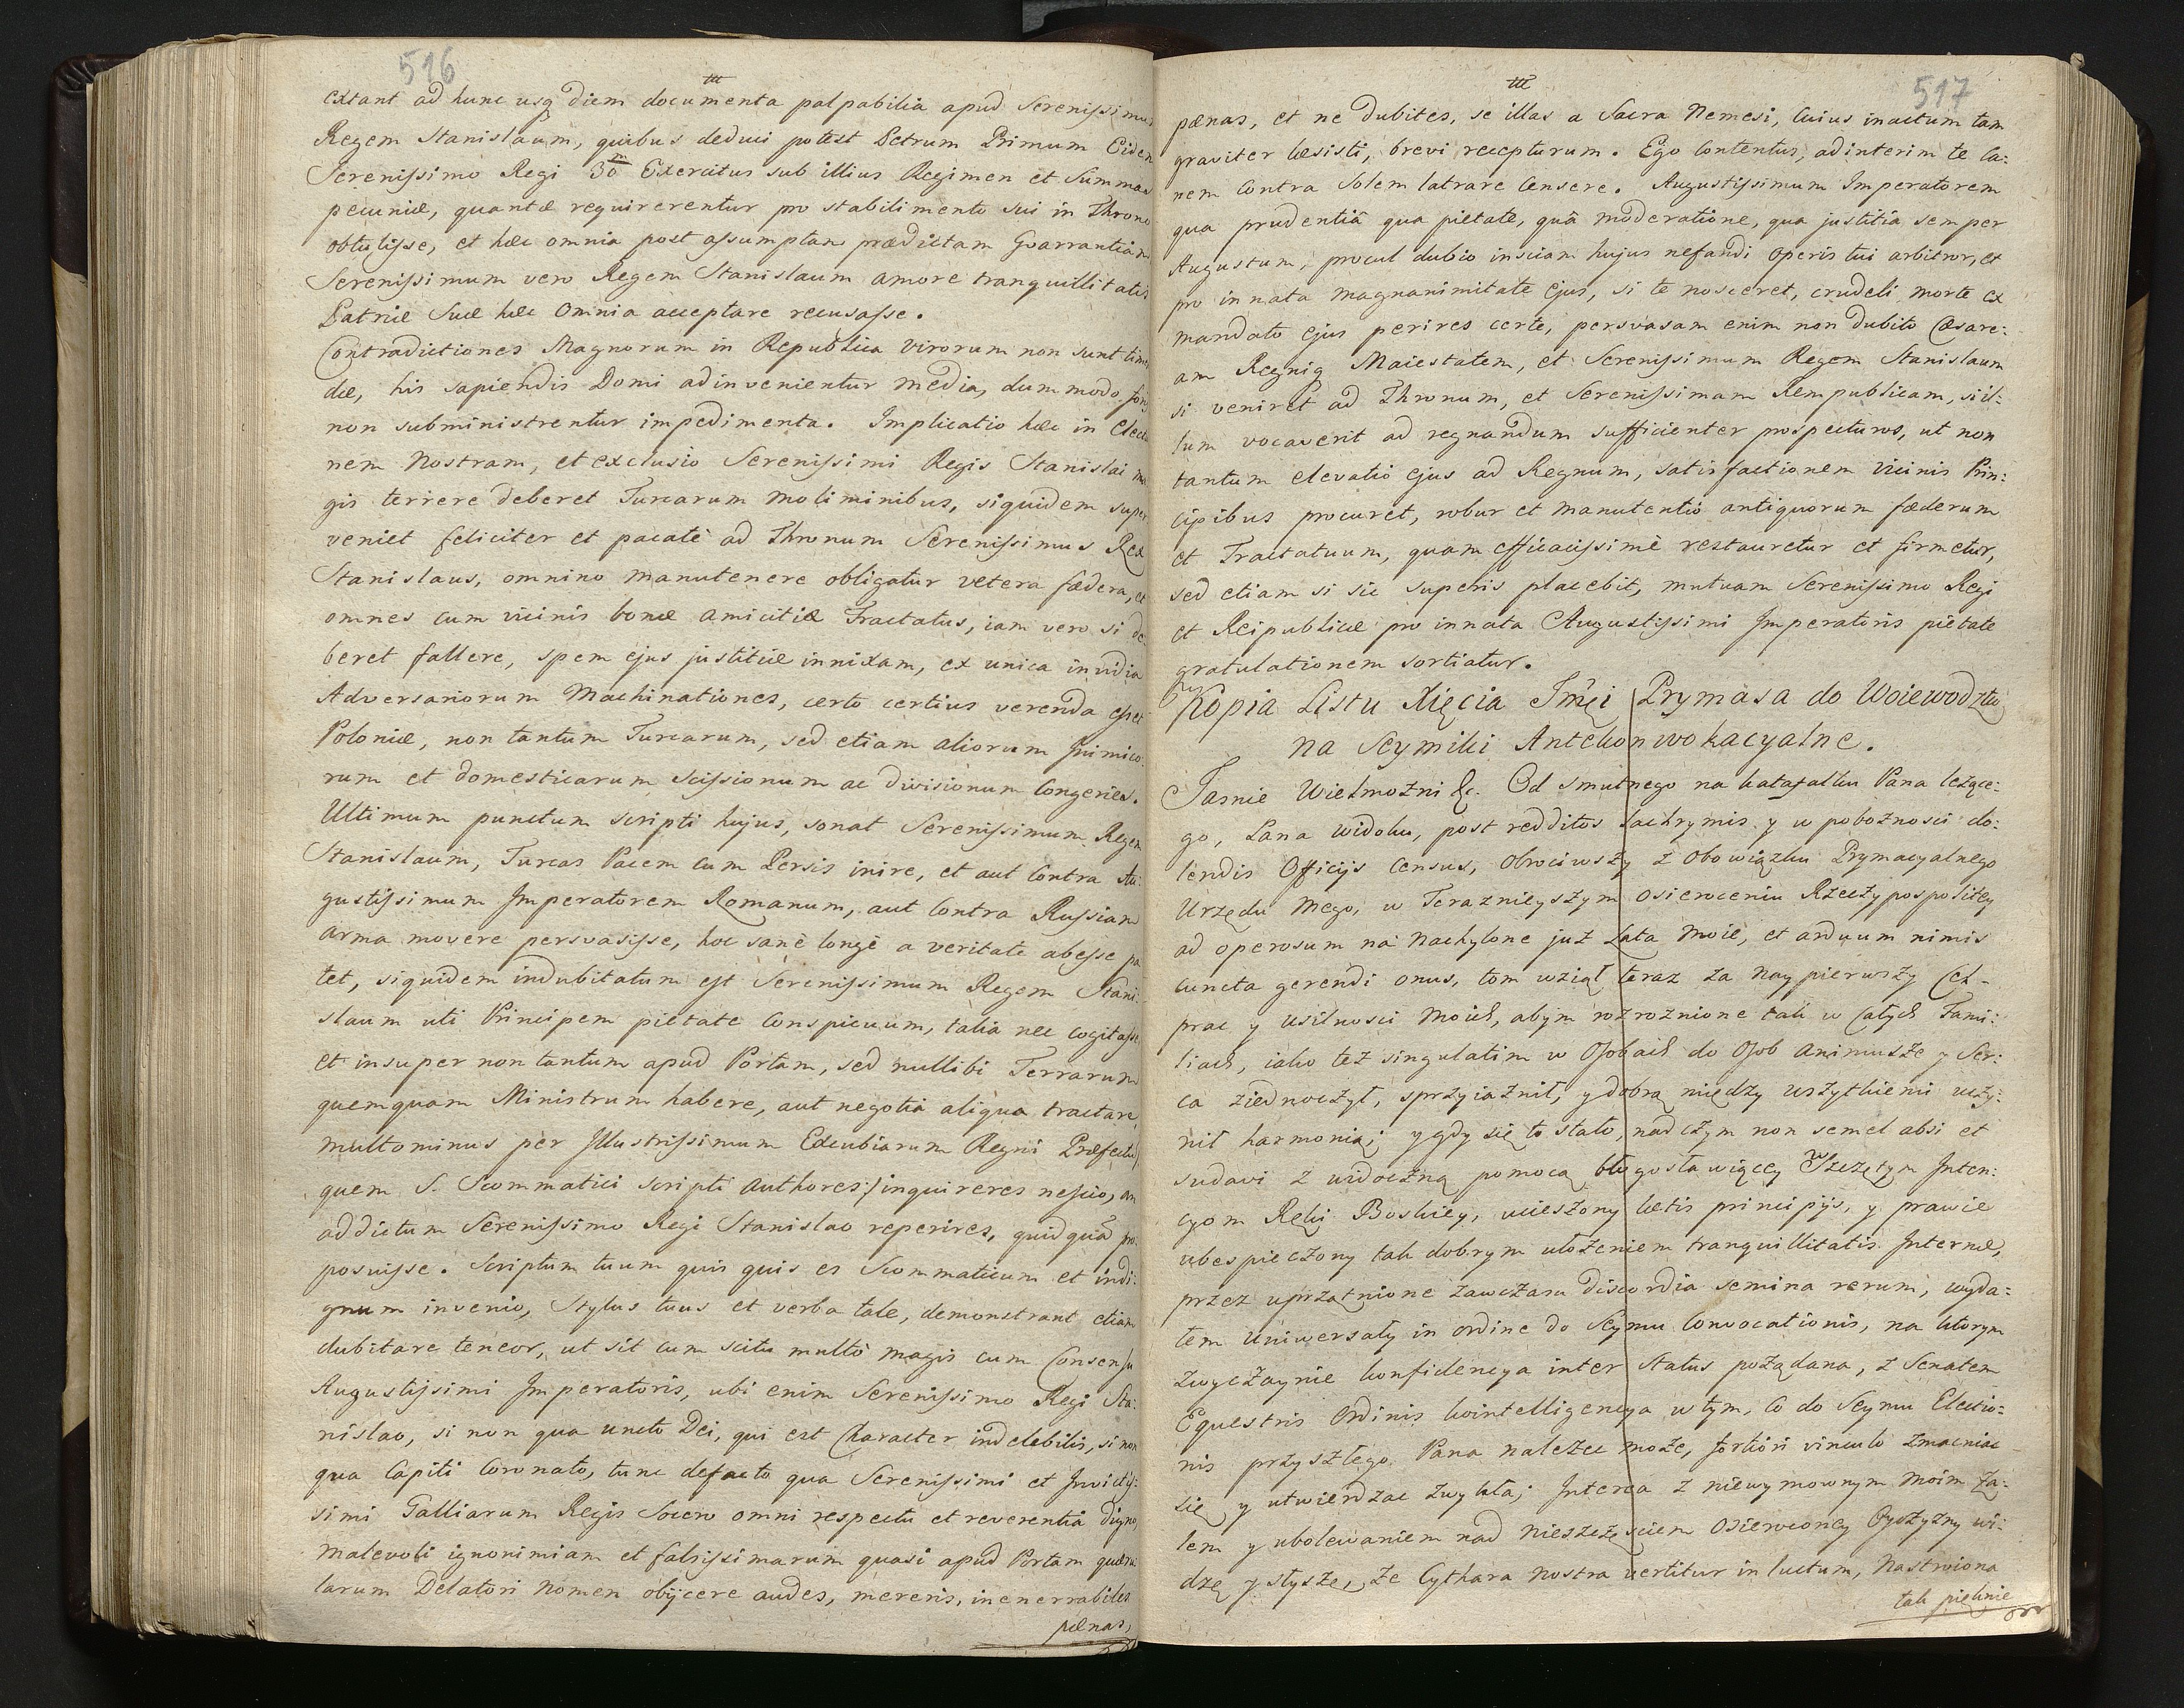 516
extant ad hunc usq diem documenta palpabilia apud Serenissimum
Regem Stanislaum, quibus deduci potest Petrum Primum Eidem
Serenissimo Regi 30m Exercitus sub illius Regimen et Summas
pecuniæ, quantæ requirerentur pro stabilimento sui in Throno
obtulisse, et hæc omnia post assumptam prædictam Guarrantiam
Serenissimum vero Regem Stanislaum amore tranquillitatis
Patriæ Suæ hæc omnia acceptare recusasse.
Contradictiones Magnorum in Republica virorum non sunt timen
dæ, his sapiendis Domi adinvenientur media, dummodo foris
non subministrentur impedimenta. Implicatio hæc in Electio
nem Nostram, et exclusio Serenissimi Regis Stanislai ma
gis terrere deberet Turcarum moliminibus, siquidem super
veniet feliciter et pacatè ad Thronum Serenissimus Rex
Stanislaus, omnino manutenere obligatur vetera fædera, et
omnes cum vicinis bonæ amicitiæ Tractatus, iam vero si de
beret fallere, spem ejus justitiæ innixam, ex unica invidia
Adversariorum Machinationes, certo certius verenda esset
Poloniæ, non tantum Turcarum, sed etiam aliorum Inimico:
rum et domesticarum scissionum ac divisionum Congeries.
Ultimum punctum scripti hujus, sonat Serenissimum Regem
Stanislaum, Turcas Pacem cum Persis inire, et aut Contra Au:
gustissimum Imperatorem Romanum, aut Contra Russiam
arma movere persvasisse, hoc sanè longè a veritate abesse pa
tet, siquidem indubitatum est Serenissimum Regem Stani:
slaum uti Principem pietate Conspicuum, talia nec cogitasse
et insuper non tantum apud Portam, sed nullibi Terrarum
quemquam Ministrum habere, aut negotia aliqua tractare,
multominus per Illustrissimum Excubiarum Regni Præfectu/
quem S. Scommatici scripti Authores:/ inquireres nescio, an
addictum Serenissimo Regi Stanislao reperires, quidquã pro:
posuisse. Scriptum tuum quis quis es Scommaticum et indi:
gnum invenio, Stylus tuus et verba tale, demonstrant etiam
dubitare teneor, ut sit cum scitu multò magis cum Consensu
Augustissimi Imperatoris, ubi enim Serenissimo Regi Sta:
nislao, si non qua uncto Dei, qui est Character indelebilis, si non
qua Capiti Coronato, tunc defacto qua Serenissimi et Invictis:
simi Galliarum Regis Socero omni respectu et reverentia digno,
malevoli ignonimiam et falsissimarum quasi apud Portam quære
larum Delatori Nomen obijcere audes, mereris, inenerrabiles
pænas,
517
pænas, et ne dubites, se illas a Sacra Nemesi, Cuius inactum tam
graviter læsisti, brevi recepturum. Ego Contentus, adinterim te Ca:
nem Contra Solem latrare Censere. Augustissimum Imperatorem
qua prudentiâ qua pietate, quâ moderatione, qua justitia semper
Augustum, procul dubio insciam hujus nefandi operis tui arbitror, et
pro innata magnanimitate Ejus, si te nosceret, crudeli morte ex
mandato ejus perires certe, persvasam enim non dubito Cæsare:
am Regnig Maiestatem, et Serenissimum Regem Stanislaum
si veniret ad Thronum, et Serenissimam Rempublicam, si il:
lum vocaverit ad regnandum sufficienter prospecturos, ut non
tantum elevatio ejus ad Regnum, satisfactionem Vicinis Prin:
cipibus procuret, robur et manutentio antiquorum fæderum
et Tractatuum, quam efficacissimè restauretur et firmetur,
sed etiam si sic superis placebit, mutuam Serenissimo Regi
et Reipublicæ pro innata Augustissimi Imperatoris pietate
gratulationem sortiatur.
Kopia Listu Xięcia Jmći Prymasa do Woiewodztw
na Seymiki Antekonwokacyalne.
Jasnie Wielmożni &c. Od smutnego na katafalku Pana leżące:
go, Pana widoku, post redditos lachrymis y w pobożnosci do:
lendis Officijs Census, obrociwszy z obowiązku Prymacyalnego
Urzędu mego, w Teraznieyszym osieroceniu Rzeczypospolitey
ad operosum na nachylone już Lata moie, et arduum nimis
cuncta gerendi onus, tom wziął teraz za naypierwszy Cel
prac y usilnosci moich, abym rozroznione tak w Całych Fami:
liach, iako też singulatim w Osobach do Osob animusze y Ser:
ca ziednoczył, sprzyiaznił, y dobrą między wszytkiemi uczy:
nił harmonią; y gdy się to stało, nad czym non semel alsi et
sudavi z widoczną pomocą błogosławiącey Szczętym Inten:
cyom Ręki Boskiey, ucieszony lætis principijs, y prawie
ubespieczony tak dobrym ułożeniem tranquillitatis Internæ,
przez uprzątnione zawczasu discordia semina rerum, wyda:
łem Uniwersały in ordine do Seymu Convocationis, na ktorym
zwyczaynie konfidencya inter Status pożądana, z Senatem
Equestris Ordinis kointelligencya w tym, Co do Seymu Electio:
nis przyszłego Pana należec może, fortiori vinculo zmacniac
się y utwierdzac zwykła; Interea z niewymownym moim ża:
lem y ubolewaniem nad nieszczęsciem osierociałey Oyczyzny wi:
dzę y słyszę, że Cythara nostra vertitur in luctum, Nastroiona
tak pięknie